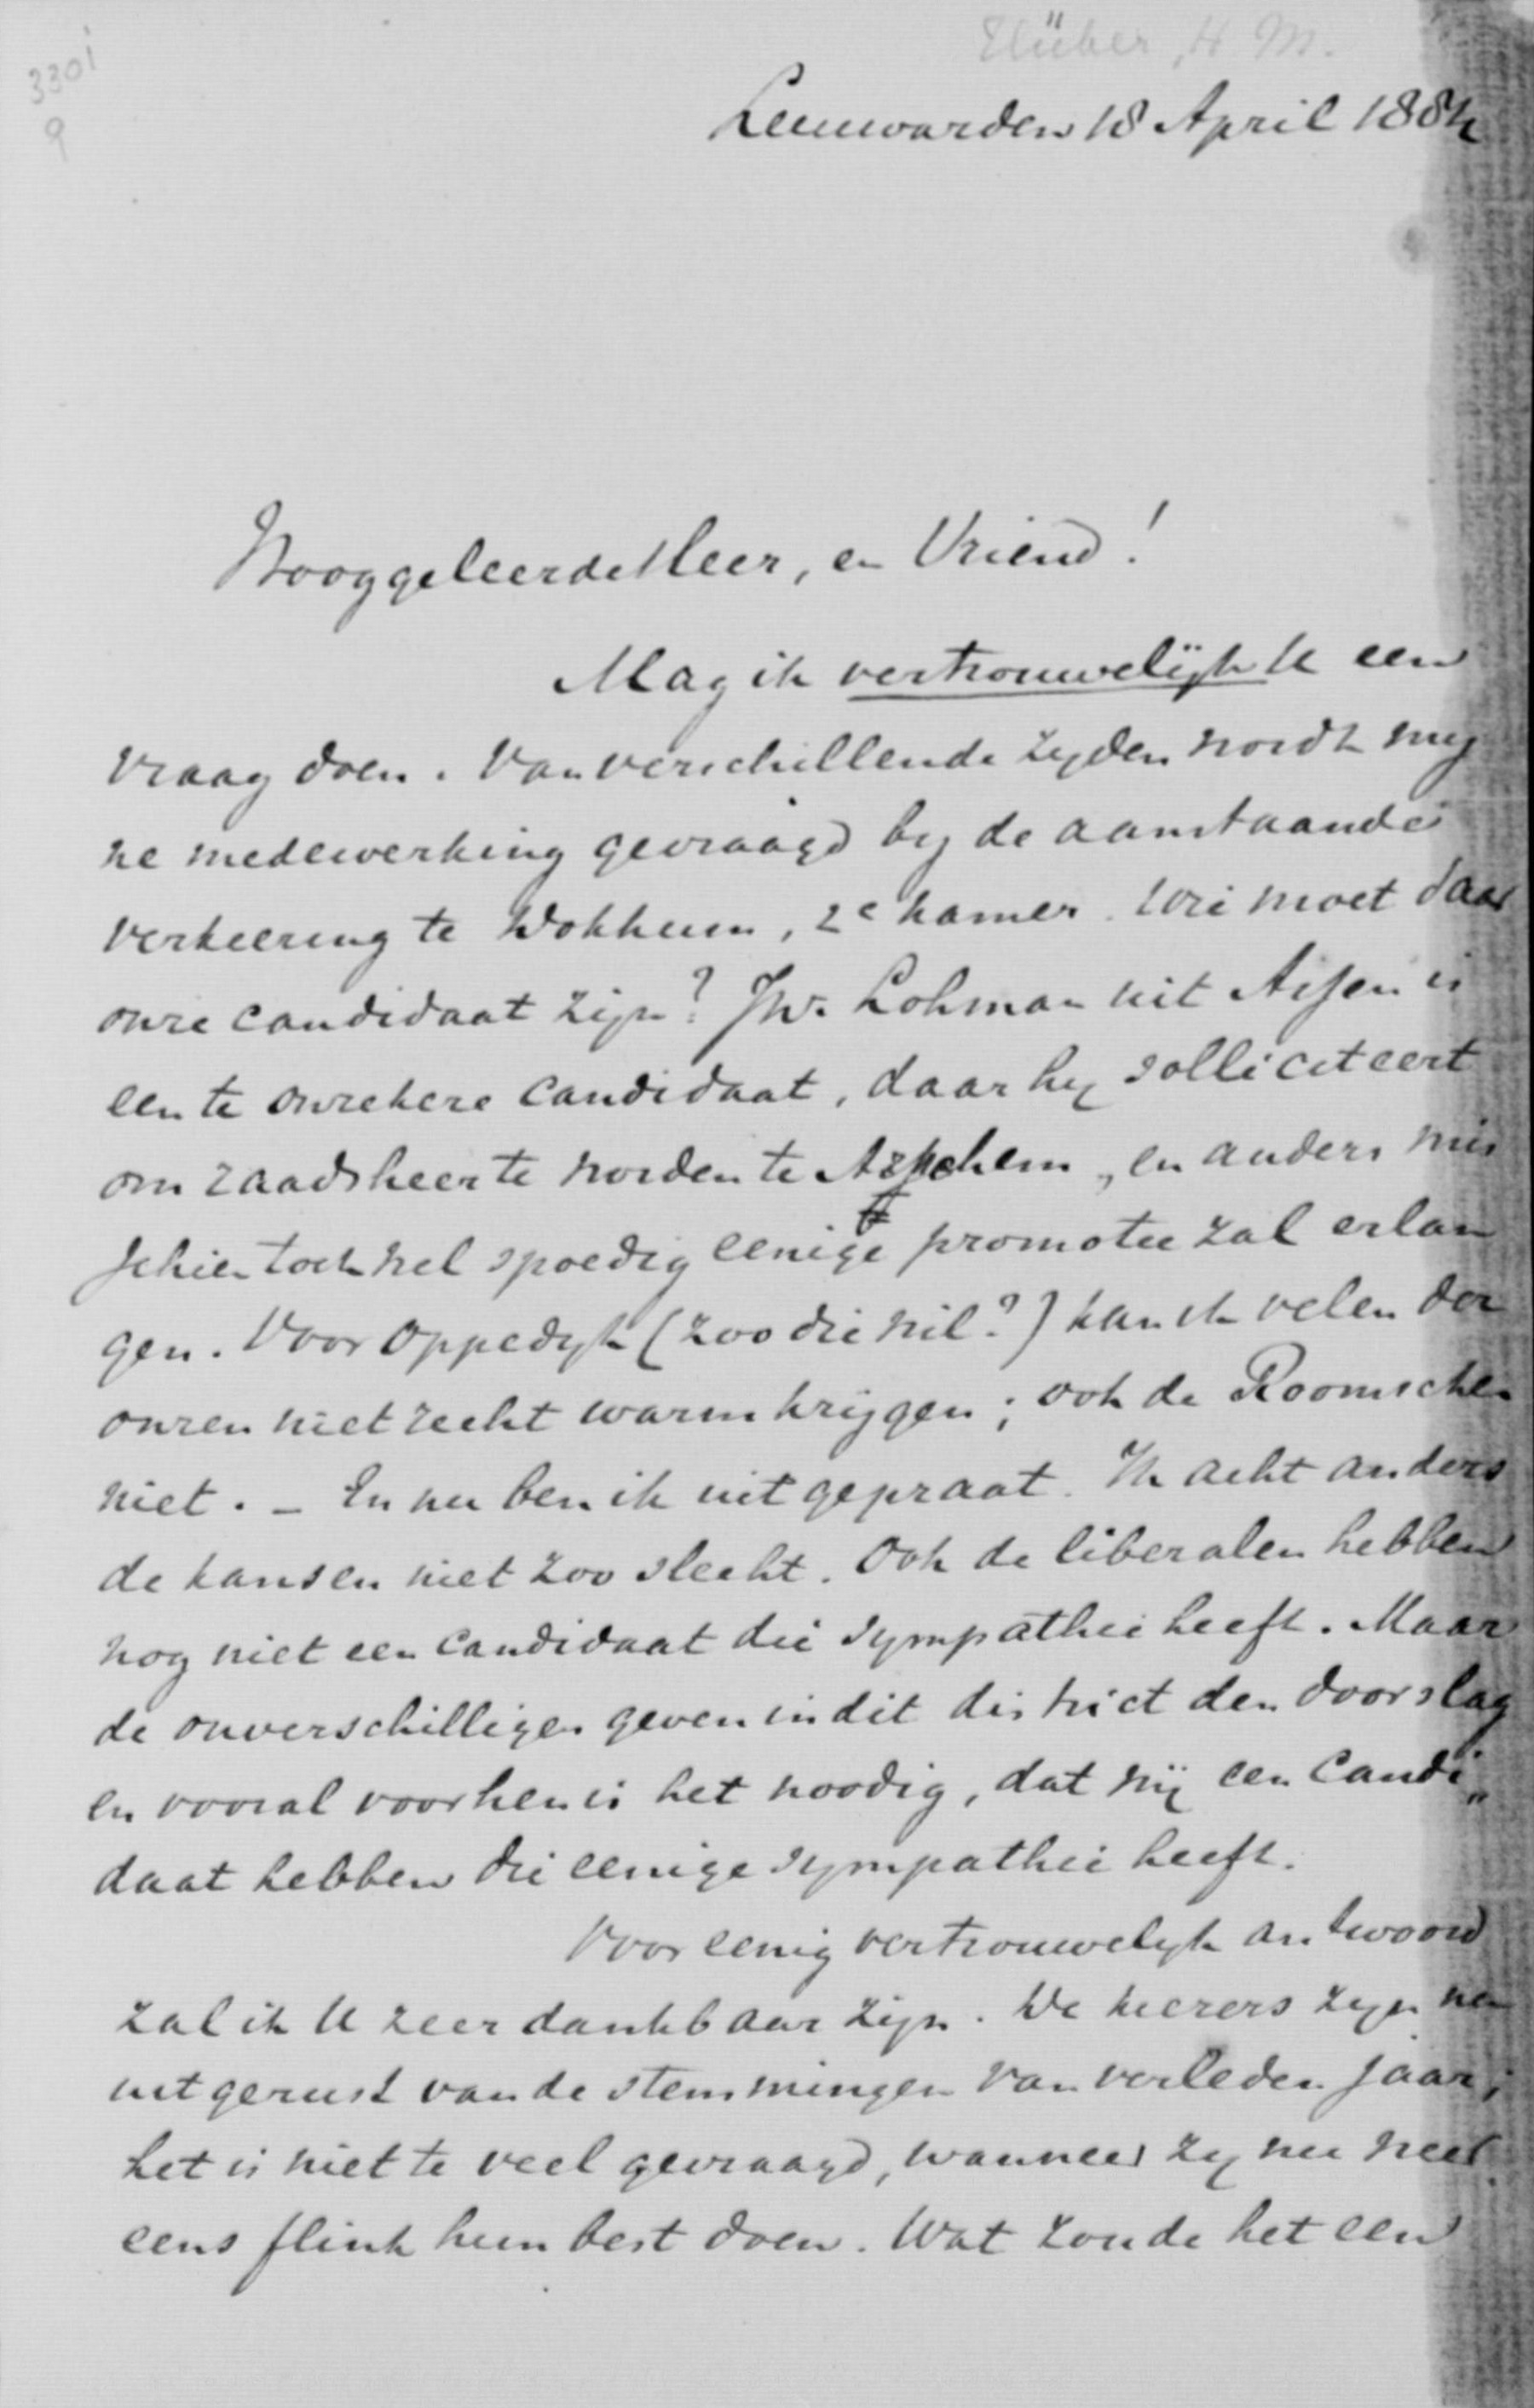 3301
9
Klüber, H. M.
Leeuwarden 18 April 1884
Hooggeleerde Heer, en Vriend!
Mag ik vertrouwelijk U een
vraag doen. Van verschillende zyden wordt my
ne medewerking gevraagd by de aanstaande
verkiezing te Dokkum, 2e kamer. Wie moet daar
onze candidaat zijn? Jhr. Lohman uit Assen is
een te onzekere candidaat, daar hy solliciteert
om raadsheer te worden te Arnhem, en anders mis
schien toch wel spoedig eenige promotie zal erlan
gen. Voor Oppedyk (zoo die wil?) kan ik velen der
onzen niet recht warm krijgen; ook de Roomschen
niet. - En nu ben ik uitgepraat. Ik acht anders
de kansen niet zoo slecht. Ook de liberalen hebben
nog niet een candidaat die sympathie heeft. Maar
de onverschilligen geven in dit district den doorslag
en vooral voor hen is het noodig, dat wij een candi„
daat hebben die eenige sympathie heeft.
Voor eenig vertrouwelyk antwoord
zal ik U zeer dankbaar zijn. De kiezers zyn nu
uitgerust van de stemmingen van verleden jaar;
het is niet te veel gevraagd, wanneer zy nu weer
eens flink hun best doen. Wat zoude het een